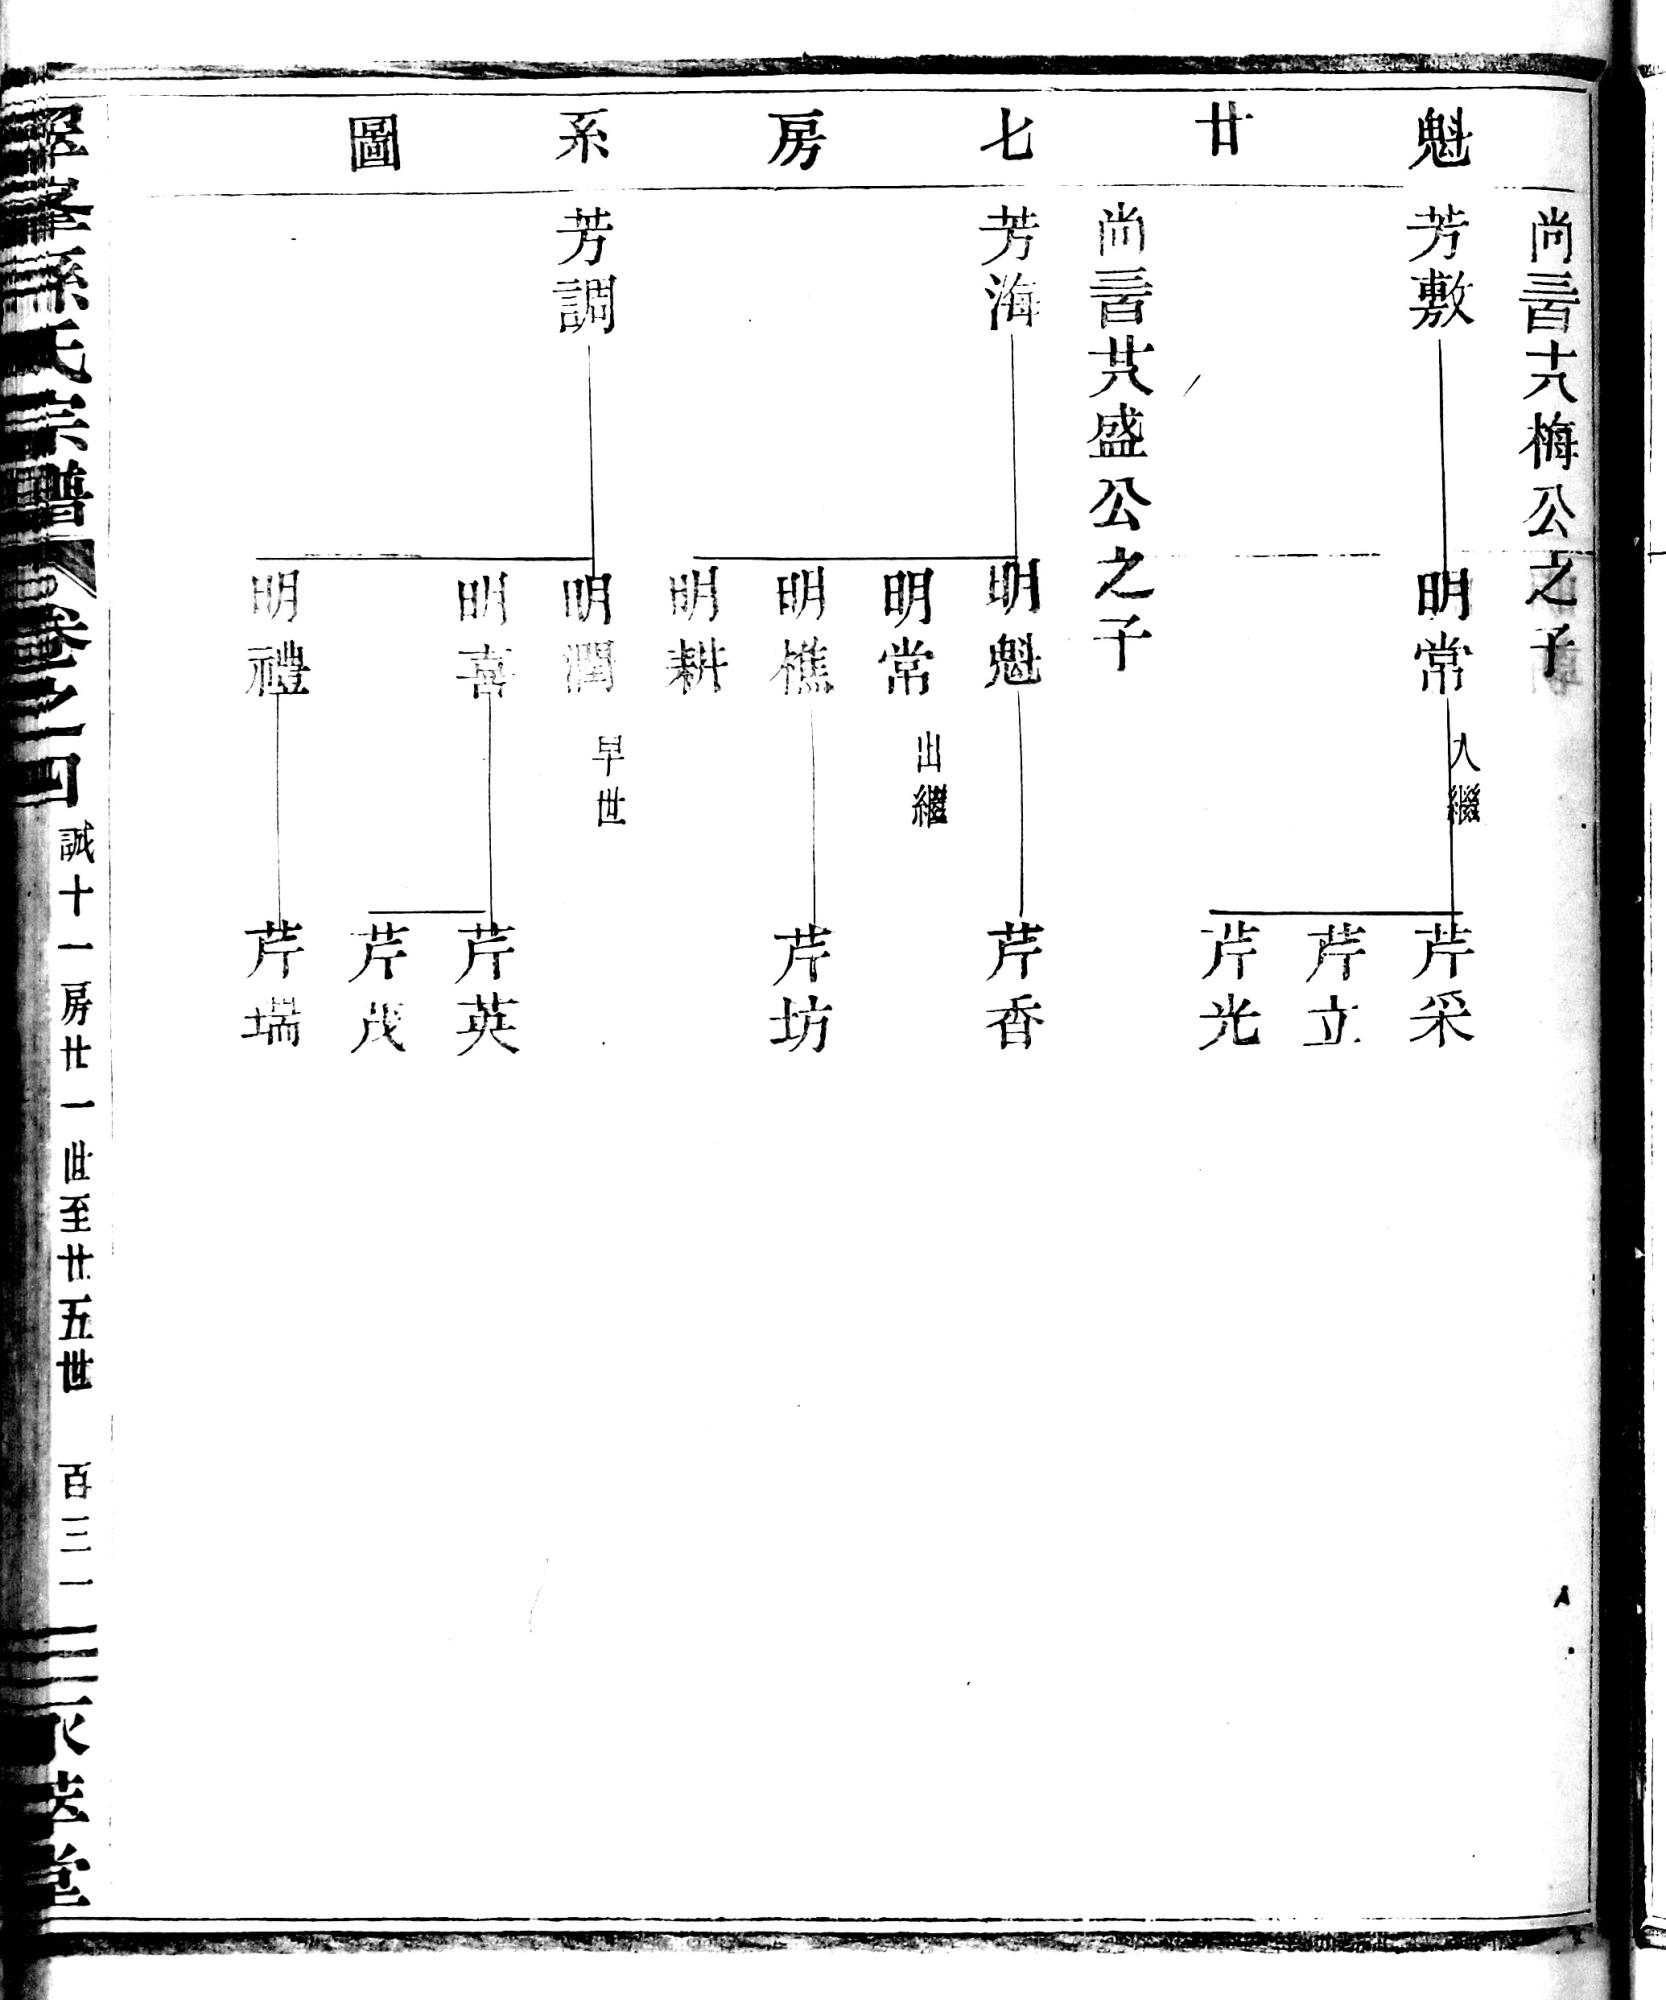 魁廿七房系圖
尚三百十六梅公之子
芳敷
明常 入繼
芹采
芹立
芹光
尚三百廿八盛公之子
芳海
明魁
芹香
明常 出繼
明樵
芹坊
明耕
芳調
明潤 早世
明喜
芹英
芹茂
明禮
芹瑞
孫氏宗譜
卷之四
誠十一房廿一世至廿五世
百三一
堂